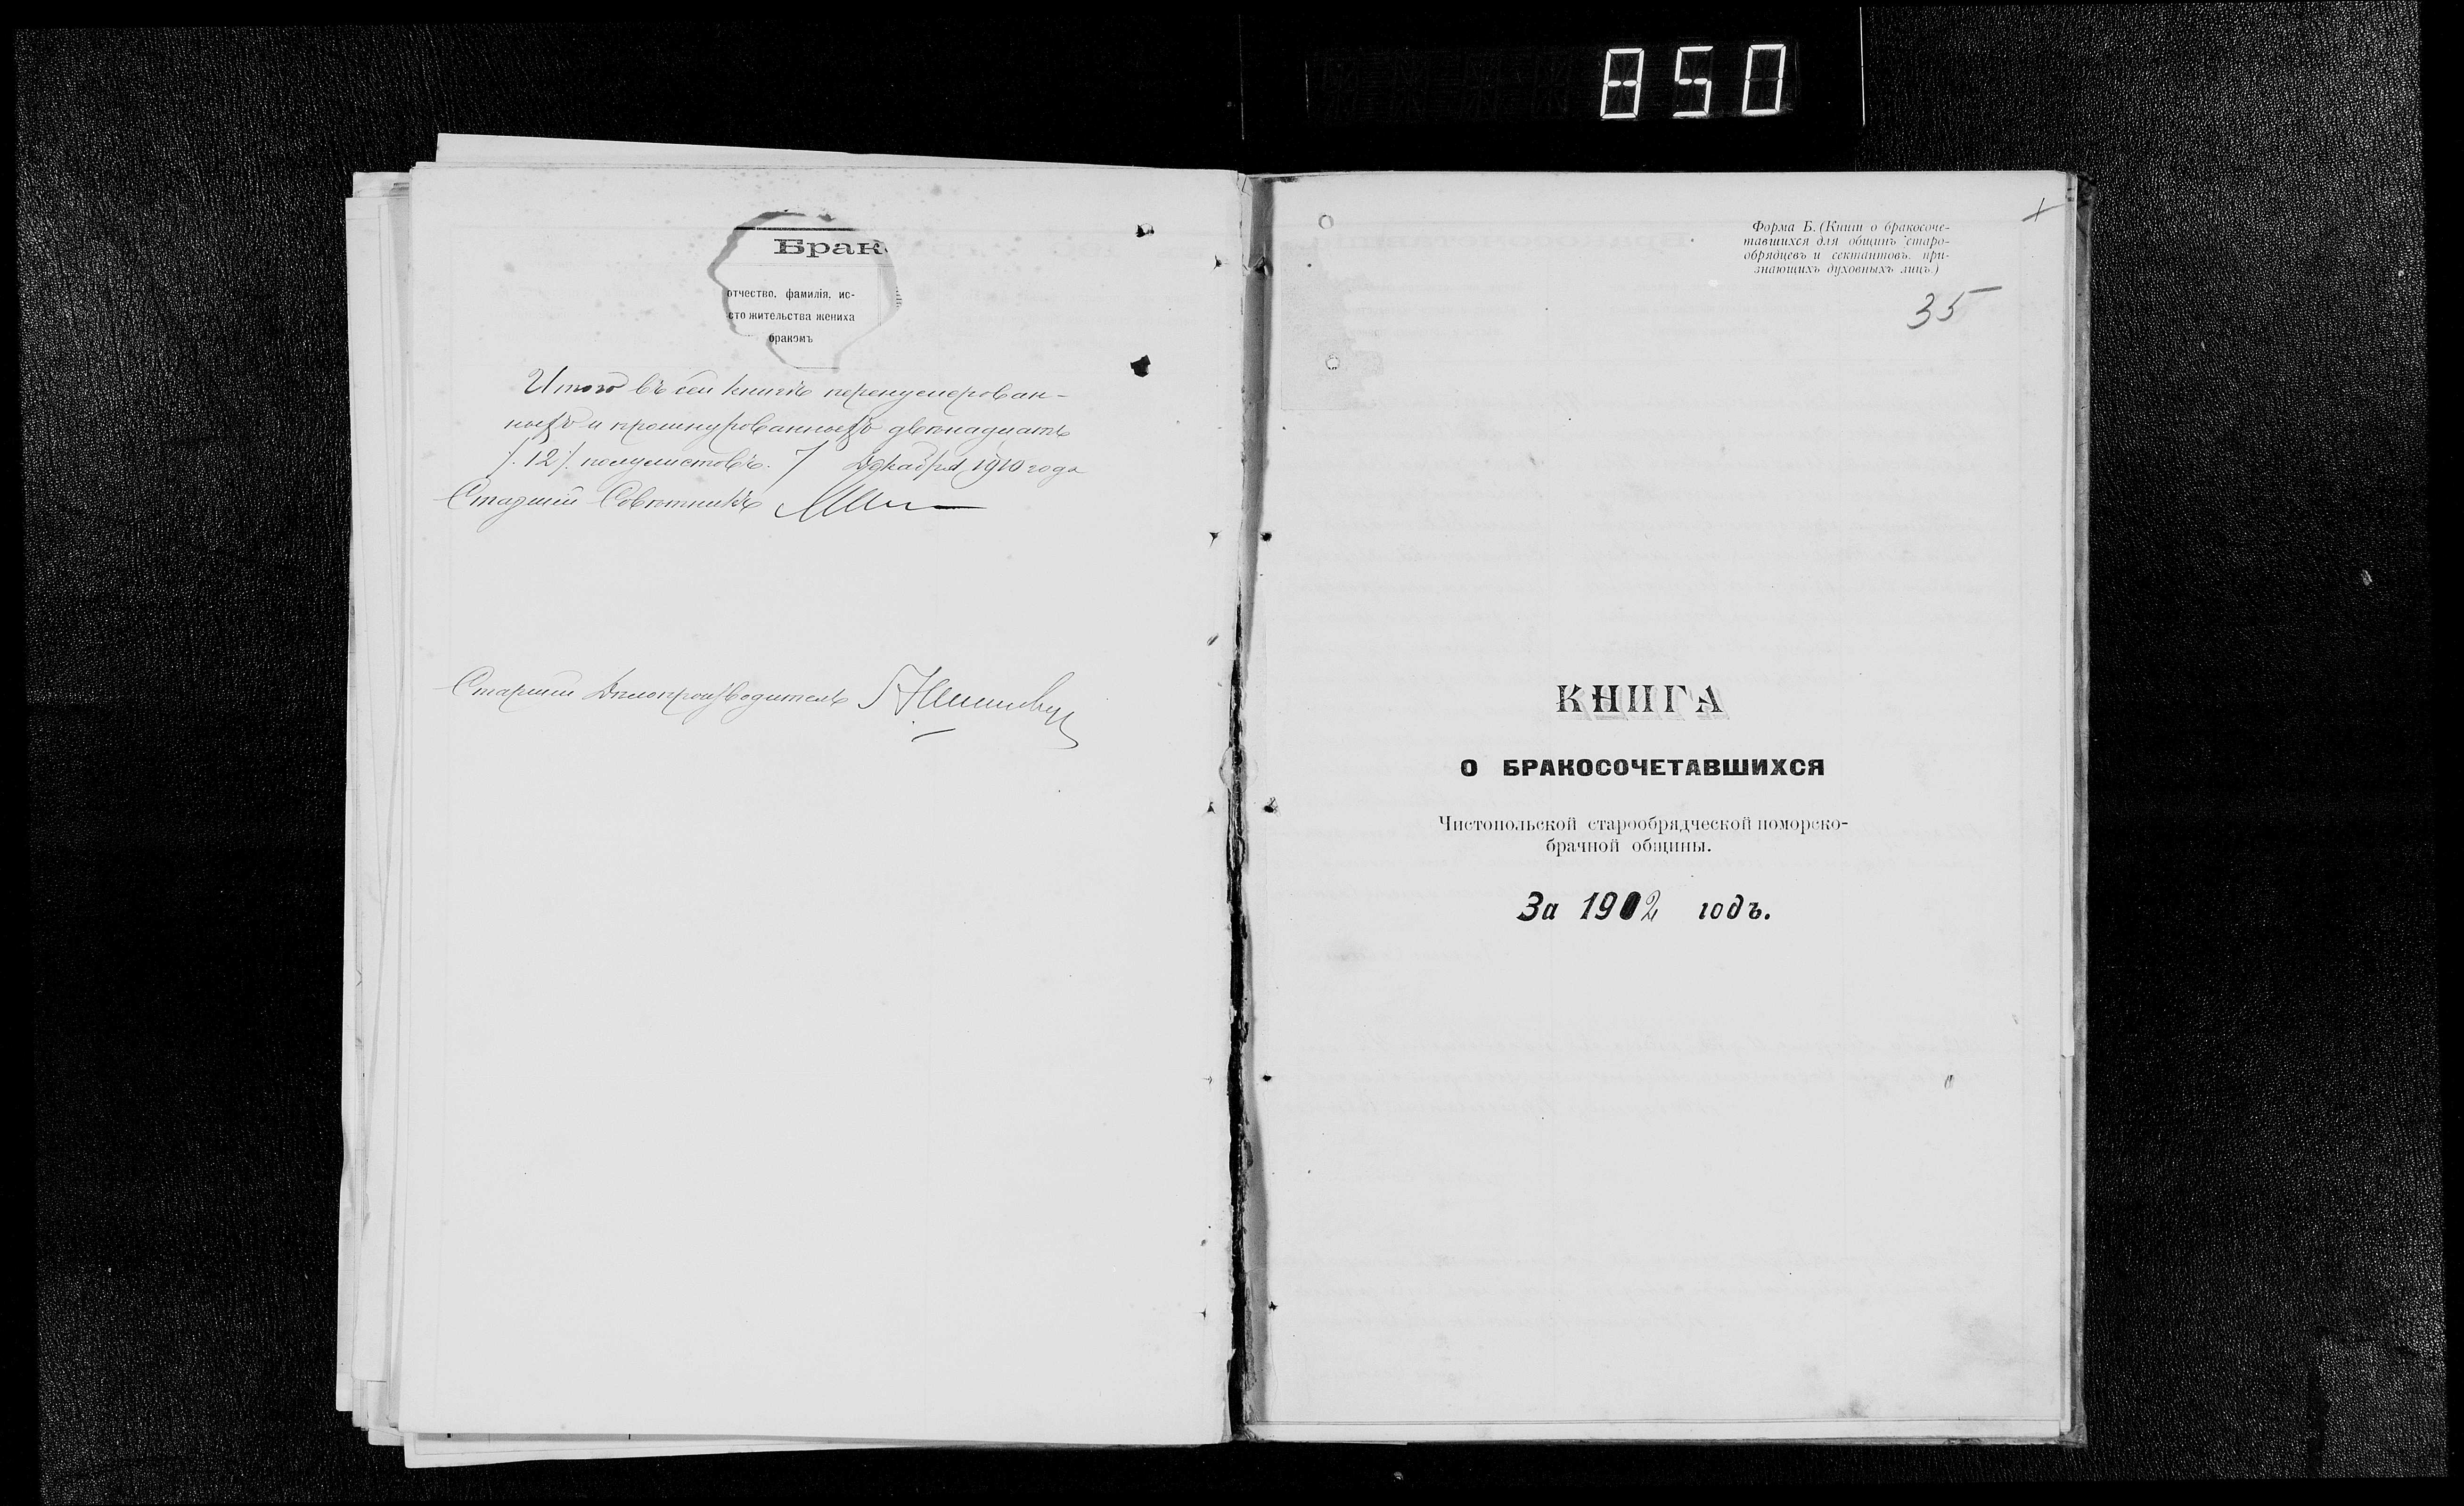 850
Брак
отчество, фамилія, ис-
сто жительства жениха
бракомъ
Итого въ сей книгѣ перенумерован-
ныхъ и прошнурованныхъ двѣнадцать
/. 12 /. полулистовъ. 7 Декабря 1910 года
Старшій Совѣтникъ
Старшій Дѣлопроизводитель
Форма Б. (Книги о бракосоче-
тавшихся для общинъ старо-
обрядцевъ и сектантовъ, при-
знающихъ духовныхъ лицъ.)
35
КНИГА
О БРАКОСОЧЕТАВШИХСЯ
Чистопольской старообрядческой поморско-
брачной общины.
За 1902 годъ.